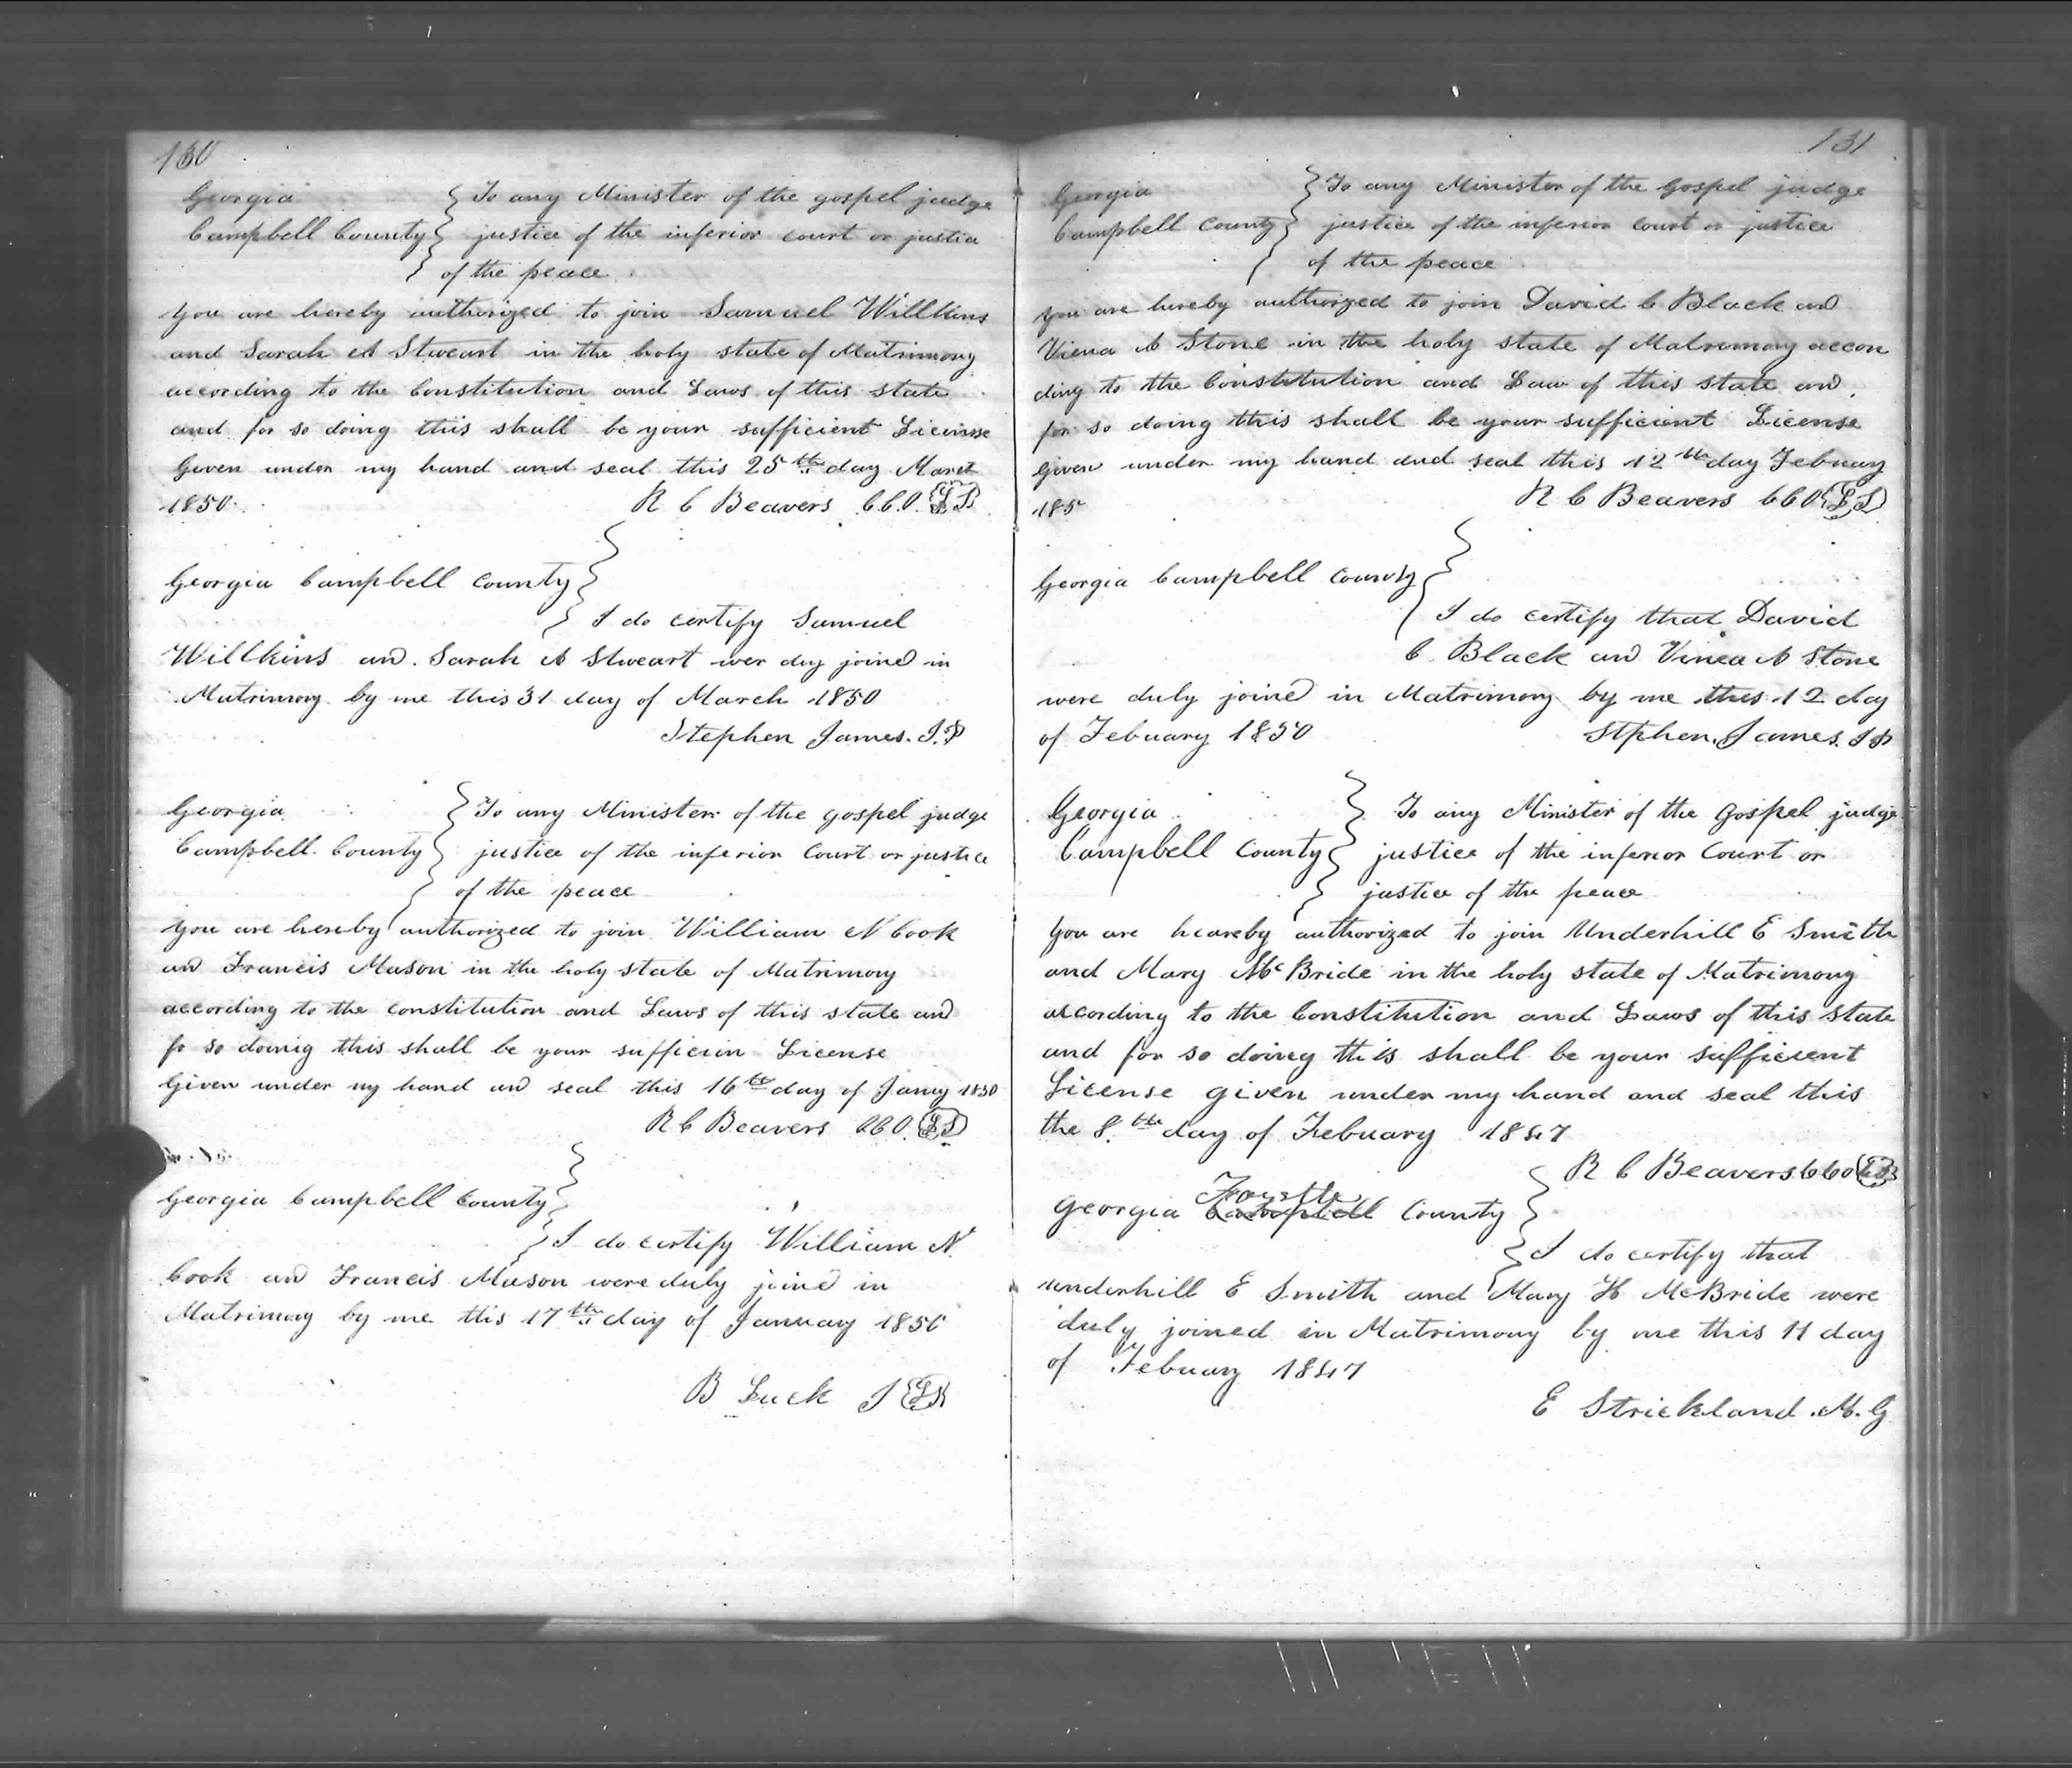 130
Georgia
Campbell County
To any Minister of the gospel judge
justice of the inferior court or justice
of the peace
you are hereby authorized to join Samuel Willkins
and Sarah A Stweart in the holy state of Matrimony
according to the Constitution and Laws of this state
and for so doing this shall be your sufficient License
Given under my hand and seal this 25th day March
1850
R C Beavers C.C.O. LS
Georgia Campbell County
I do certify Samuel
Willkins and Sarah A Stweart wer duy joined in
Matrimony by me this 31 day of March 1850
Stephen James. J.P
Georgia
Campbell County
To any Minister of the gospel judge
justice of the inferior Court or justice
of the peace
you are hereby authorized to join William N Cook
and Francis Mason in the holy state of Matrimony
according to the constitution and Laws of this state and
fo so doinig this shall be your sufficin License
Given under my hand and seal this 16th day of Jany 1850
R C Beavers CCO. LS
Georgia Campbell County
I do certify William N
Cook and Francis Mason were duly joined in
Matrimony by me this 17th day of January 1850
B Luck J LS
131
Georgia
Campbell County
To any Minister of the Gospel judge
justice of the inferior court or justice
of the peace
you are hereby authorized to join David C Black and
Viena A Stone in the holy state of Matrimony accor
ding to the Constitution and Law of this state and
for so doing this shall be your sufficient License
given under my hand and seal this 12th day Febuary
185
R C Beavers CCO LS
Georgia Campbell County
I do certify that David
C. Black and Vinea A Stone
were duly joined in Matrimony by me this 12 day
of Febuary 1850
Stphen James. J P
Georgia
Campbell County
To any Minister of the gospel judge
justice of the inferior Court or
justice of the peace
you are heareby authorized to join Underhill E Smith
and Mary McBride in the holy state of Matrimony
according to the Constitution and Laws of this state
and for so doing this shall be your sufficient
License given under my hand and seal this
the 8th day of Febuary 1847
R C Beavers CCO LS
Fayette
Georgia Campbell County
I do certify that
underhill E Smith and Mary H McBride were
duly joined in Matrimony by me this 11 day
of Febuary 1847
E Strickland. M. G